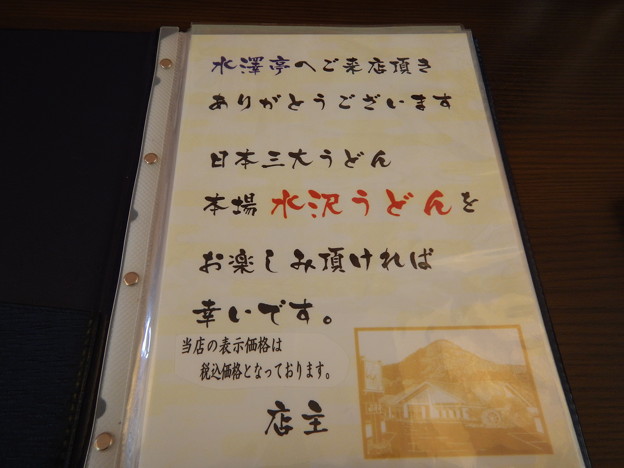 水澤亭へご来店頂き
ありがとうございます
日本三大うどん
本場 水沢うどんを
お楽しみ頂ければ
幸いです。
当店の表示価格は
税込価格となっております。
店主